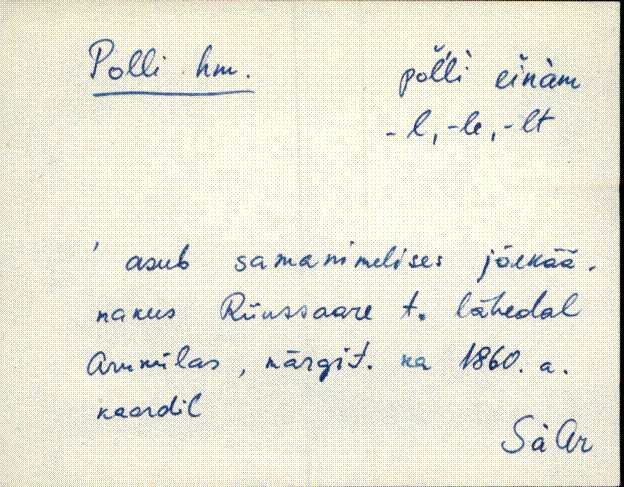 Polli hm.
pol̆li einàm
-l, -le, -lt
' asub samanimelises jõekää-
nakus Riiussaare t. lähedal
Arukülas, märgit. ka 1860. a.
kaardil
SäAr